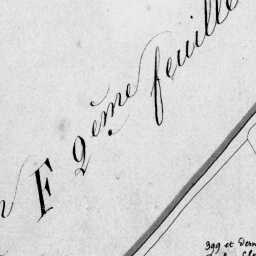 n F 2ème feuille
399 et dern